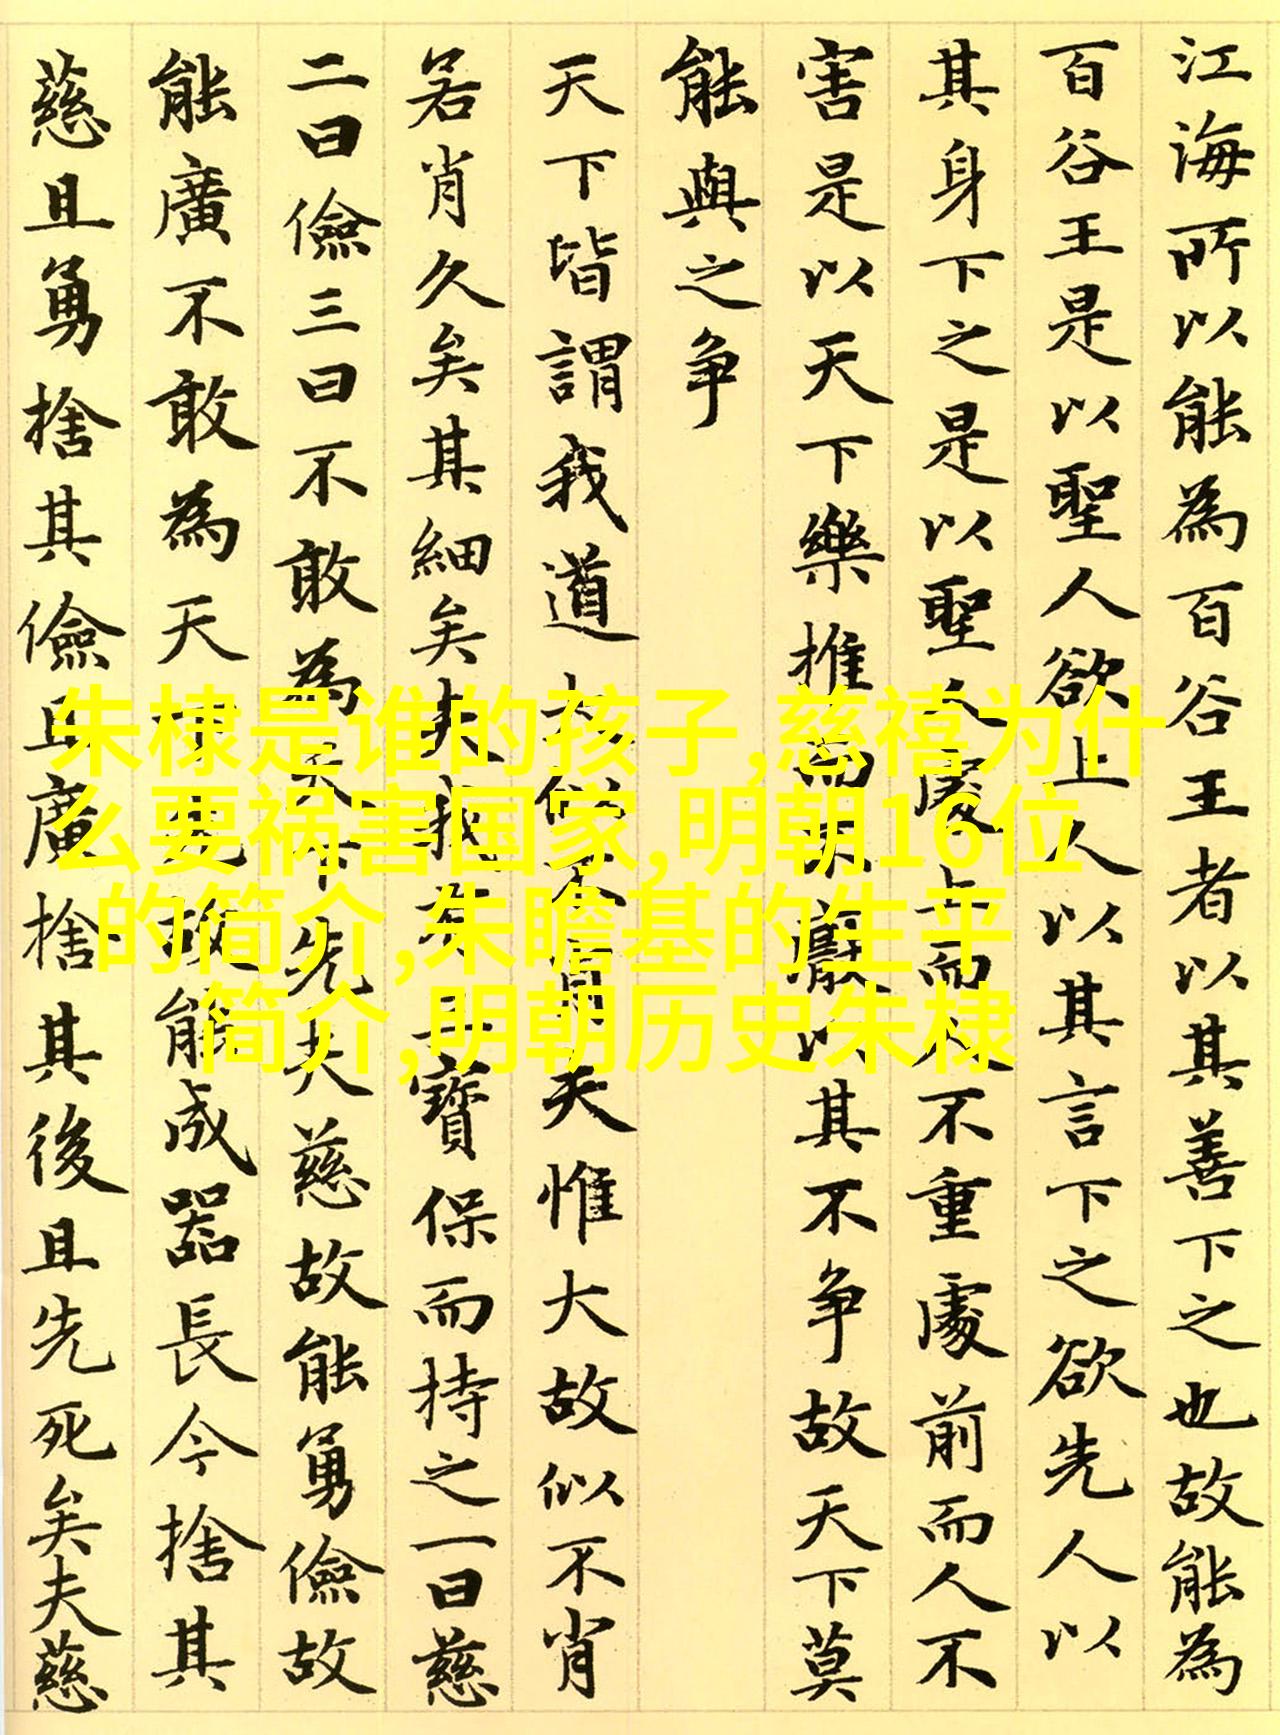 江海所以能為百谷王者以其善下之也故能為
百谷王是以聖人欲上人以其言下之欲先人以
其身下之是以聖人處上而人不重處前而人不
害是以天下樂推而不厭以其不争故天下莫
能與之争
天下皆謂我道大似不肖夫惟大故似不肖
若肖久矣其細矣夫我有三寶保而持之一曰慈
二曰儉三曰不敢為天下先夫慈故能勇儉故
能廣不敢為天下先故能成器長今捨其
慈且勇捨其儉且廣捨其後且先死矣夫慈
朱棣是谁的孩子,慈禧为什
么要祸害国家,明朝16位
的简介,朱瞻基的生平
简介,明朝历史朱棣